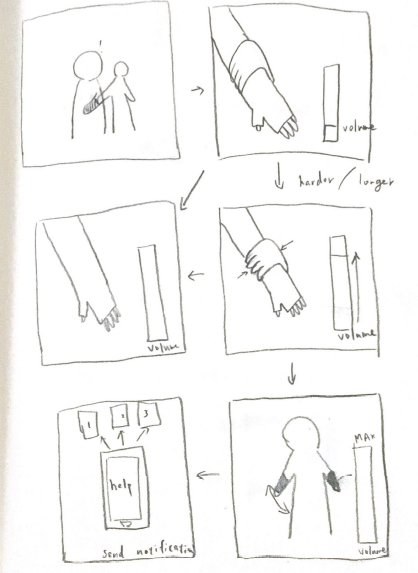 !
volume
harder / longer
volume
volume
MAX
volume
1 2 3
help
send notification